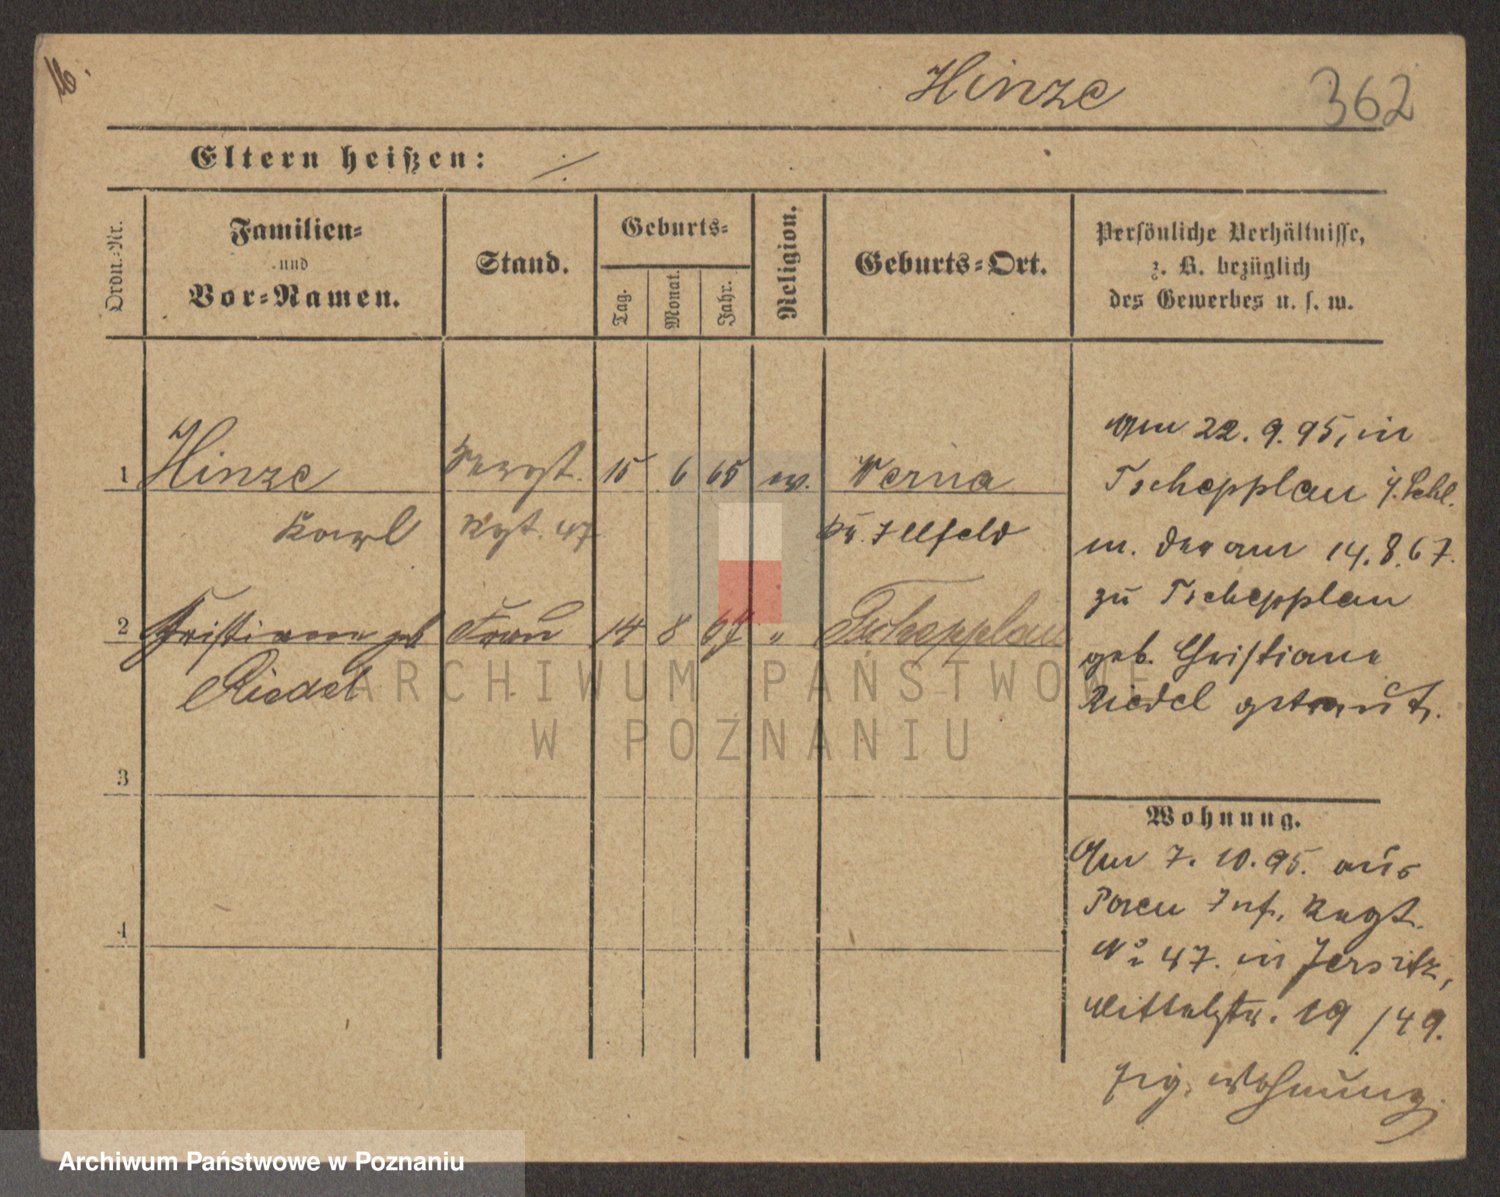 16.
Hinze
362
Eltern heißen: ./.
Ordn.-Nr.
Familien-
und
Vor-Namen.
Stand.
Geburts-
Tag.
Monat.
Jahr.
Religion.
Geburts-Ort.
Persönliche Verhältnisse,
z. B. bezüglich
des Gewerbes u. s. w.
1 Hinze 15 6 65 ev. Werna
Karl Rgt. 47 Kr. Ilfeld
2 Christiane geb Frau 14 8 67 " Tschepplau
Riedel
3
4
Am 22.9.95, in
Tschepplau i. Schl.
m. der am 14.8.67.
zu Tschepplau
geb. Christiane
Riedel getraut.
Wohnung.
Am 7.10.95. aus
Posen Inf. Regt.
No 47. in Jersitz,
Mittelstr. 19/49.
eig. Wohnung.
ARCHIWUM PAŃSTWOWE
W POZNANIU
Archiwum Państwowe w Poznaniu